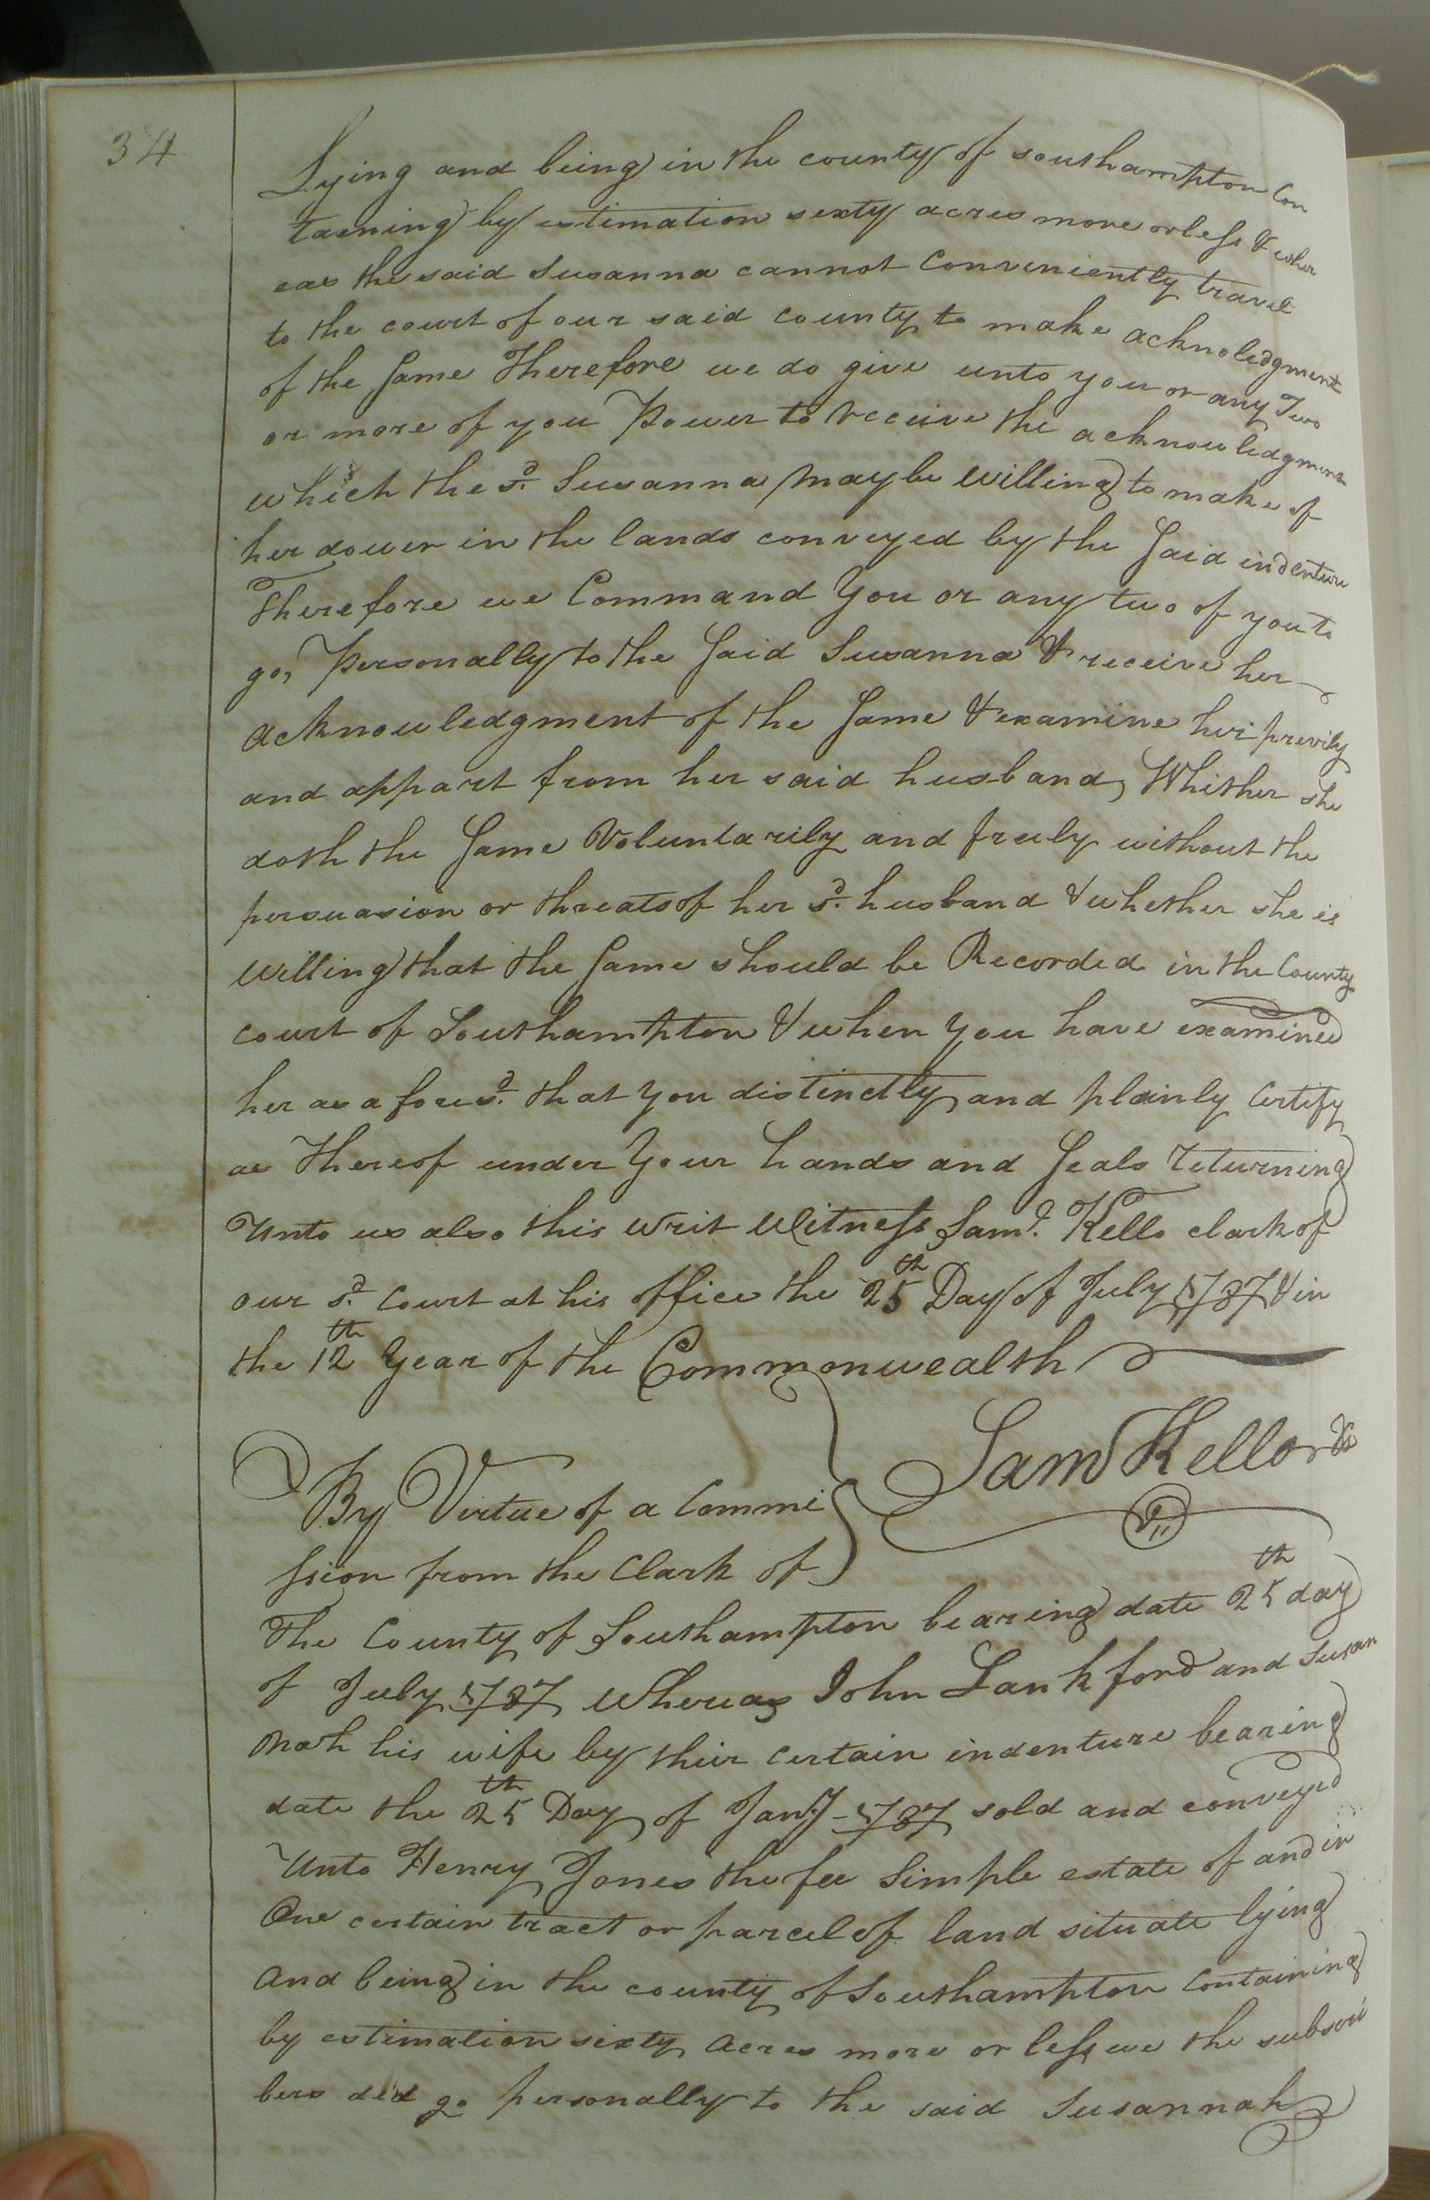 34
Lying and being in the county of southampton Con
taening by estimation sexty acres more or less & wher
eas the said Susanna cannot Conveniently travel
to the court of our said county to make acknoledgment
of the same Therefore we do give unto you or any Two
or more of you Power to receive the acknowledgment
which the sd. Susanna may be willing to make of
her dower in the lands conveyed by the said indenture
Therefore we Command you or any two of you to
go, Personally to the said Susanna & receive her
acknowledgment of the same & examine her previly
and appart from her said husband, Whither she
doth the same Voluntarily and freely without the
persuasion or threats of her sd. husband & whether she is
willing that the same should be Recorded in the County
court of Southampton & when you have examined
her as afores.d that you distinctly and plainly Certify
as thereof under your hands and seals returning
Unto us also this writ Witness Sam.l Kello clark of
our sd. Court at his office the 25th Day of July 1787 & in
the 12th Year of the Commonwealth
Sam Kello
By Virtue of a Commi
ssion from the Clark of
The County of Southampton bearing date 25th day
of July 1787 Whereas John Lankford and Susan
nah his wife by their certain indenture bearing
date the 25th Day of Jany 1787 sold and conveyed
Unto Henry Jones the fee Simple estate of and in
One certain tract or parcel of land situate lying
and being in the county of Southampton Containing
by estimation sixty acres more or less we the subscri
bers ded go personally to the said Susannah